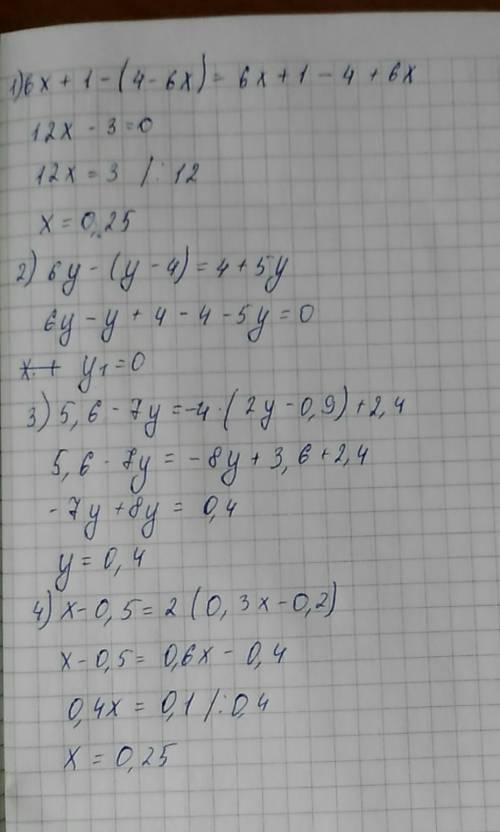 1) 6x + 1 - (4 - 6x) = 6x + 1 - 4 + 6x
12x - 3 = 0
12x = 3 /: 12
x = 0,25
2) 6y - (y - 4) = 4 + 5y
6y - y + 4 - 4 - 5y = 0
y₁ = 0
3) 5,6 - 7y = -4 · (2y - 0,9) + 2,4
5,6 - 7y = -8y + 3,6 + 2,4
-7y + 8y = 0,4
y = 0,4
4) x - 0,5 = 2 (0,3x - 0,2)
x - 0,5 = 0,6x - 0,4
0,4x = 0,1 /: 0,4
x = 0,25